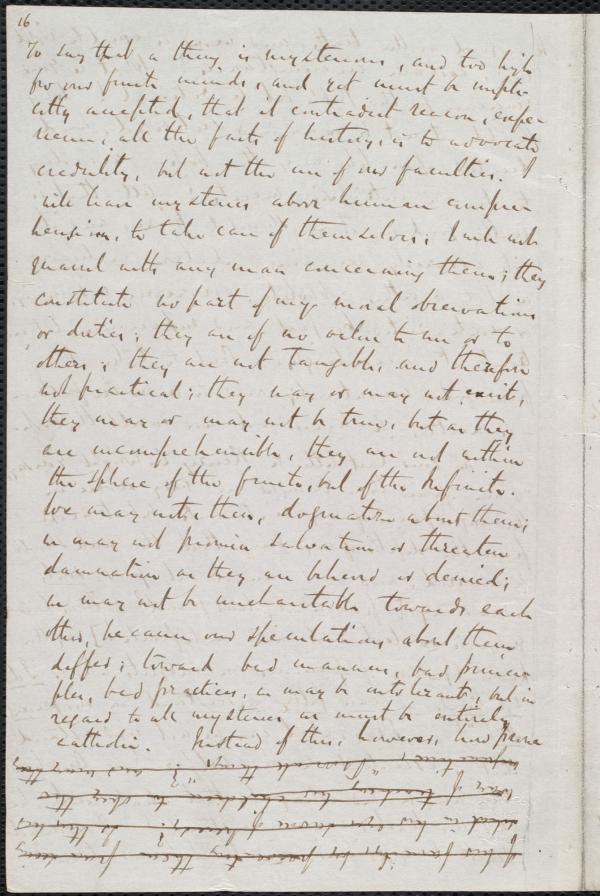 16
To say that a thing is mysterious, and too high
for our finite minds, and yet must be impli-
citly accepted, that it contradict reason, expe-
rience, all the facts of history, is to advocate
credulity, but not the use of our faculties. I
will leave mysteries above human compre-
hension, to take care of themselves; I will not
quarrel with any man concerning them; they
constitute no part of my moral observations
or duties; they are of no value to me or to
others; they are not tangible, and therefore
not practical; they may or may not exist,
they may or may not be true, but as they
are incomprehensible, they are not within
the sphere of the finite, but of the Infinite.
We may not, then, dogmatize about them;
we may not promise salvation or threaten
damnation as they are believed or denied;
we may not be uncharitable towards each
other, because our speculations about them
differ; toward bad manners, bad princi-
ples, bad practices, we may be intolerant, but in
regard to all mysteries we must be entirely
catholic. Instead of this, however, how
of his family, by preventing them from